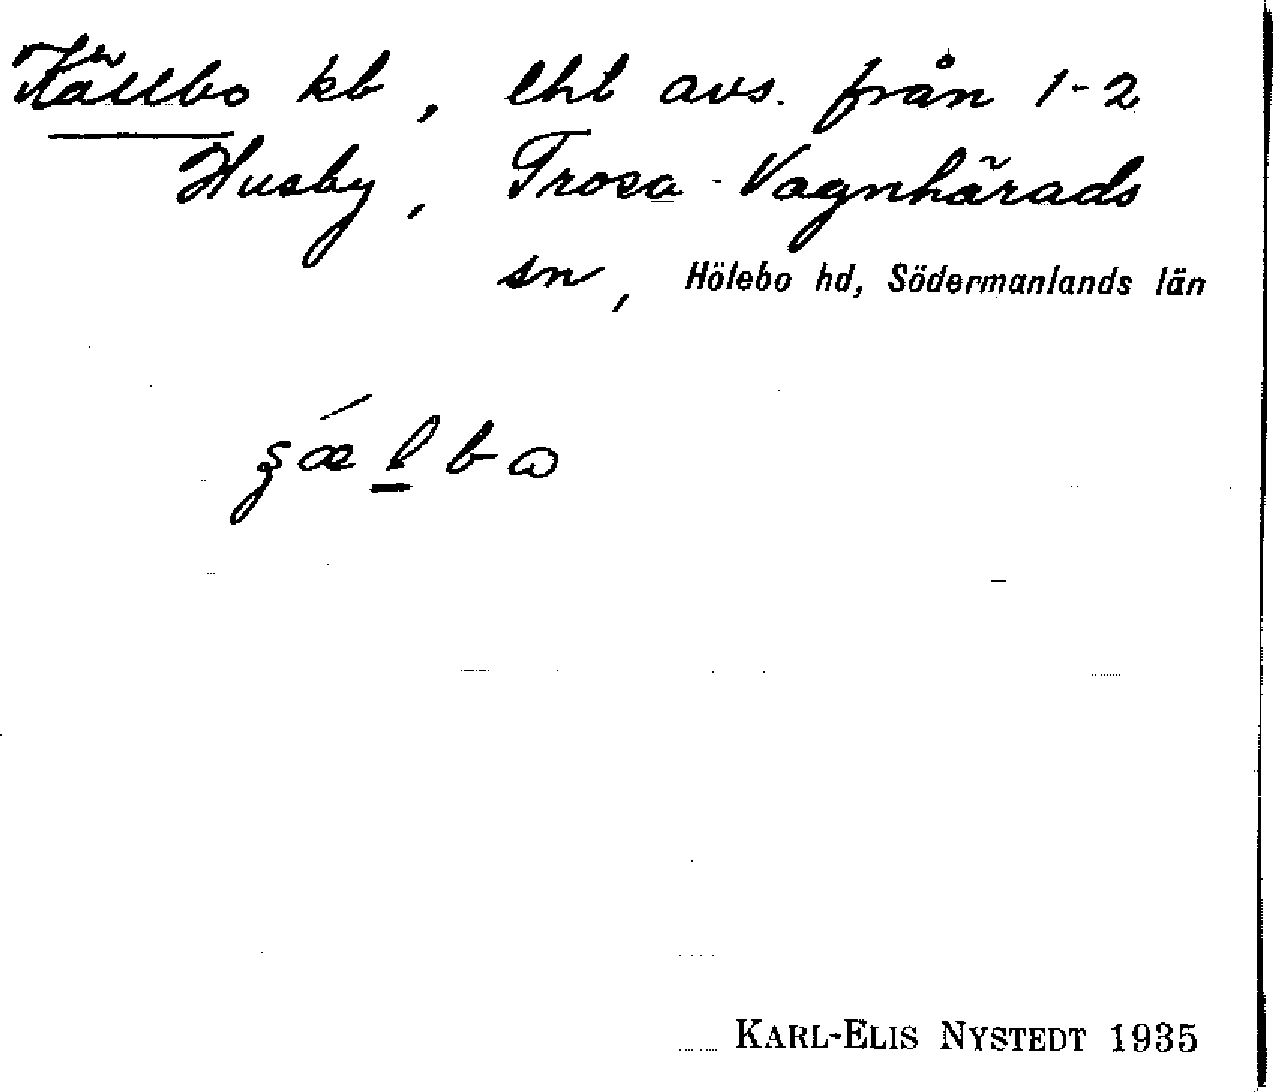 Källbo kb, lht avs. från 1-2
Husby, Trosa-Vagnhärads
sn, Hölebo hd, Södermanlands län
KARL-ELIS NYSTEDT 1935